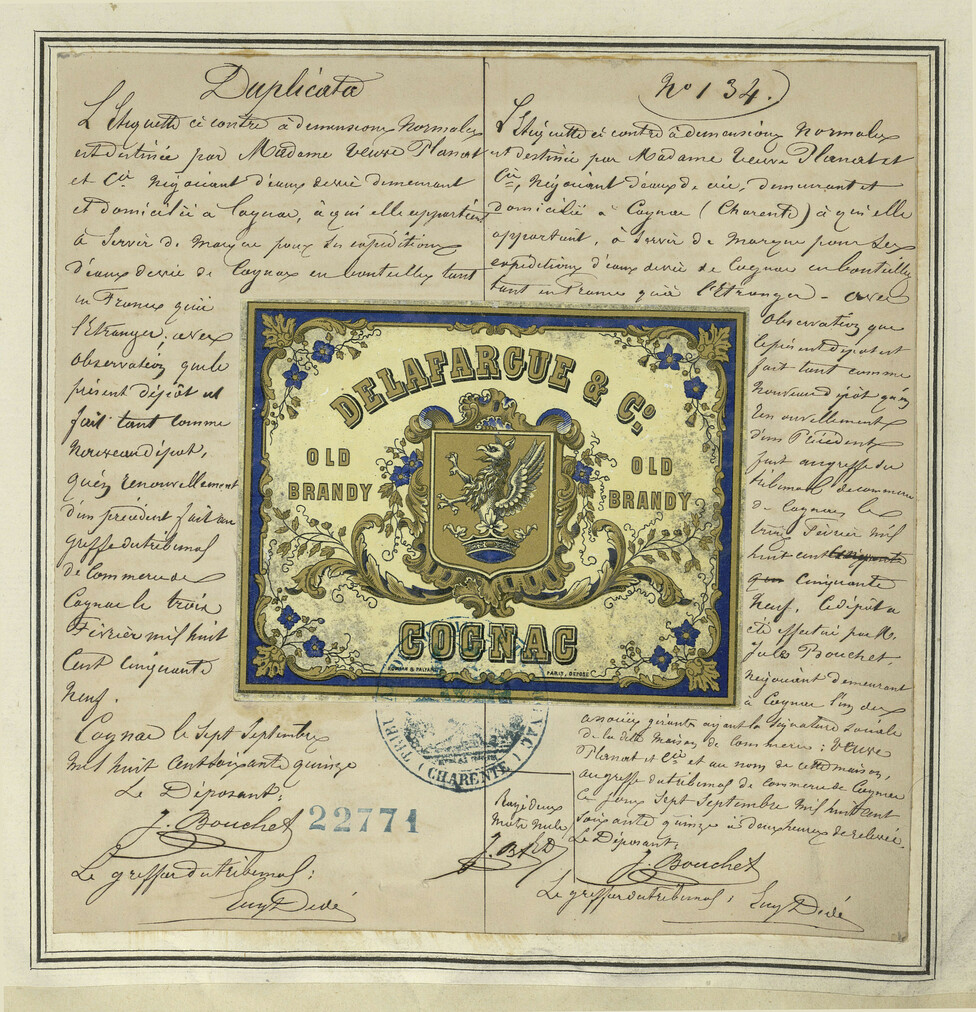 Duplicata
L'Etiquette ci contre à dimensions Normales
est destinée par Madame Veuve Planat
et Cie Négociant d'eaux de vie demeurant
et domiciliée à Cognac, à qui elle appartient
à Servir de Marque pour ses expéditions
d'eaux de vie de Cognac en bouteilles tant
en France qu'à
l'Etranger, avec
observation que le
présent dépôt est
fait tant comme
Nouveau dépôt,
qu'en renouvellement
d'un précédent fait au
greffe du tribunal
de Commerce de
Cognac le trois
Février mil huit
Cent Cinquante
Neuf.
Cognac le Sept Septembre
mil huit cent soixante quinze
Le Déposant:
J. Bouchet
22771
Le greffier du tribunal:
No 134.
L'Etiquette ci contre à dimensions Normales
est destinée par Madame Veuve Planat et
Cie, Négociant d'eaux de vie, demeurant et
domiciliée à Cognac (Charente) à qui elle
appartient, à Servir de Marque pour ses
expéditions d'eaux de vie de Cognac en bouteilles
tant en France qu'à l'Etranger - avec
Observation que
le présent dépôt est
fait tant comme
Nouveau dépôt qu'en
renouvellement
d'un Précédent
fait au greffe du
tribunal de commerce
de Cognac le
trois Février mil
huit cent
Cinquante
Neuf. Le dépôt a
été effectué par M.
Jules Bouchet,
Négociant demeurant
à Cognac l'un des
associés gérants ayant la Signature sociale
de la dite Maison de Commerce: Veuve
Planat et Cie et au nom de cette maison,
au greffe du tribunal de commerce de Cognac
ce jour Sept Septembre Mil huit cent
soixante quinze à deux heures de relevée.
Rayé deux
mots nuls
Le Déposant:
J. Bouchet
Le greffier du tribunal:
DELAFARGUE & Co.
OLD
BRANDY
OLD
BRANDY
COGNAC
PARIS, DEPOSÉ
(CHARENTE)